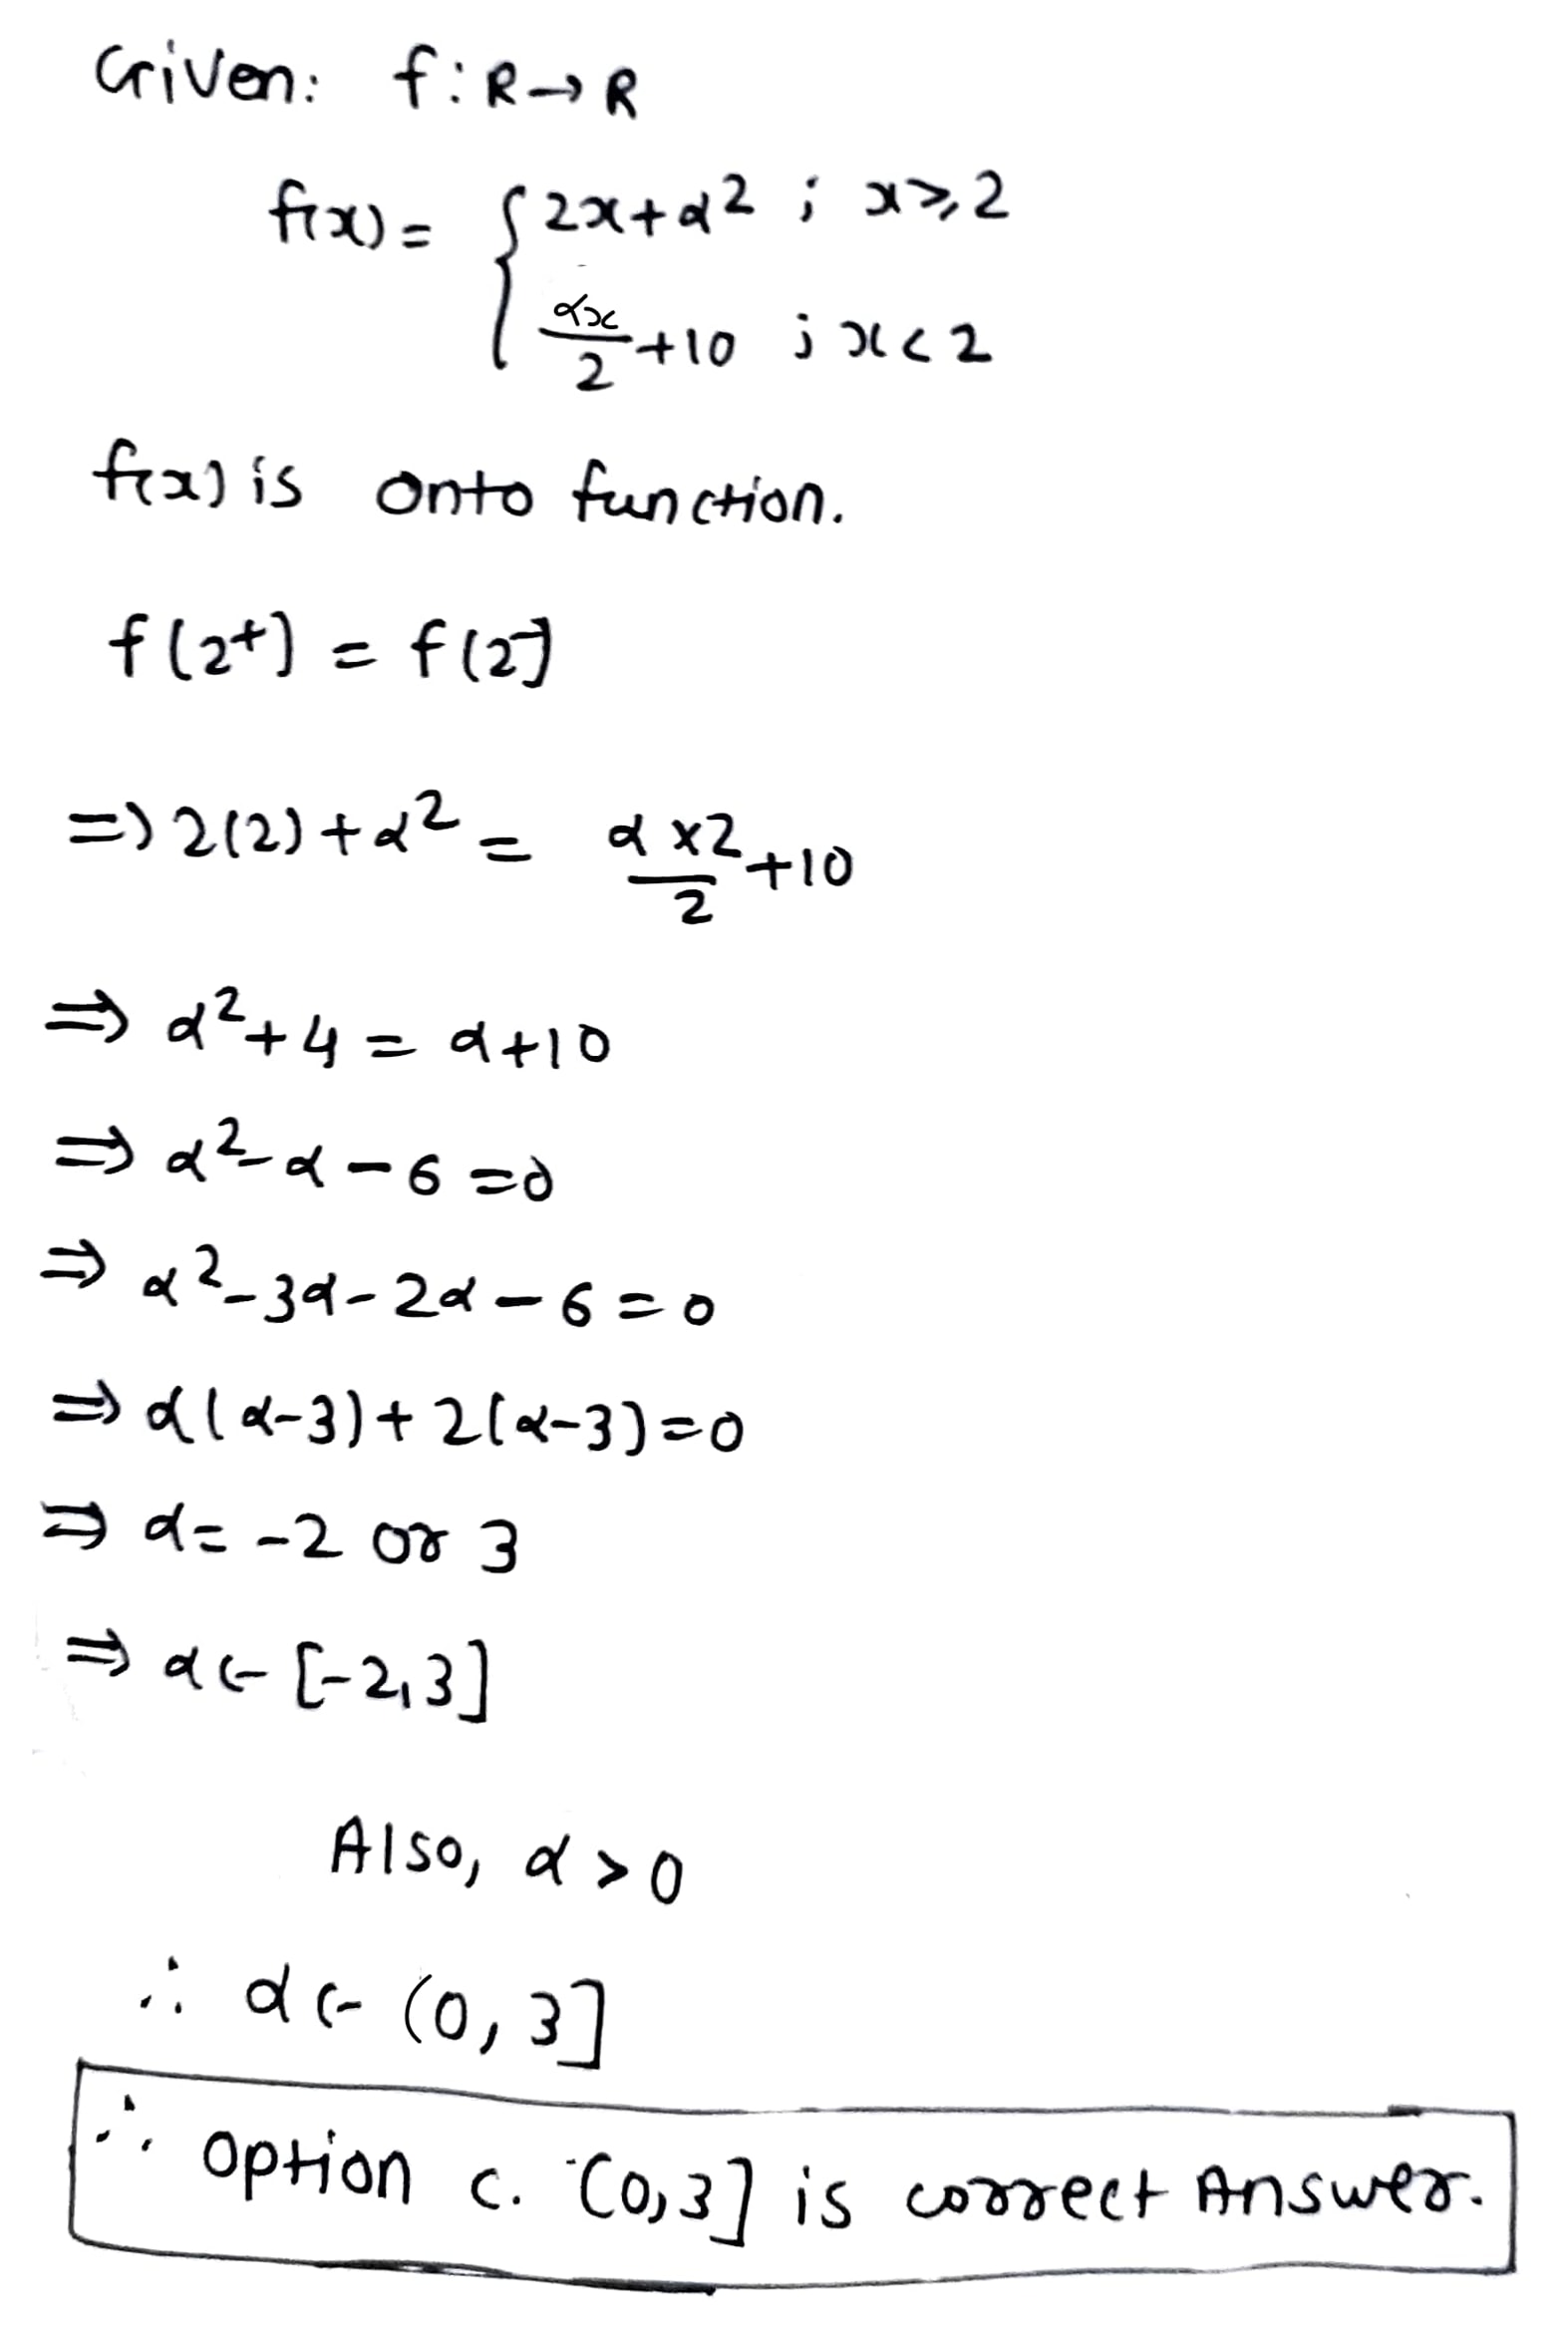 Given: f: R → R
f(x) = { 2x + α² ; x ≥ 2
αx/2 + 10 ; x < 2
f(x) is onto function.
f(2⁺) = f(2⁻)
⇒ 2(2) + α² = α×2/2 + 10
⇒ α² + 4 = α + 10
⇒ α² - α - 6 = 0
⇒ α² - 3α - 2α - 6 = 0
⇒ α(α-3) + 2(α-3) = 0
⇒ α = -2 or 3
⇒ α ∈ [-2, 3]
Also, α > 0
∴ α ∈ (0, 3]
∴ option c. (0,3] is correct Answer.